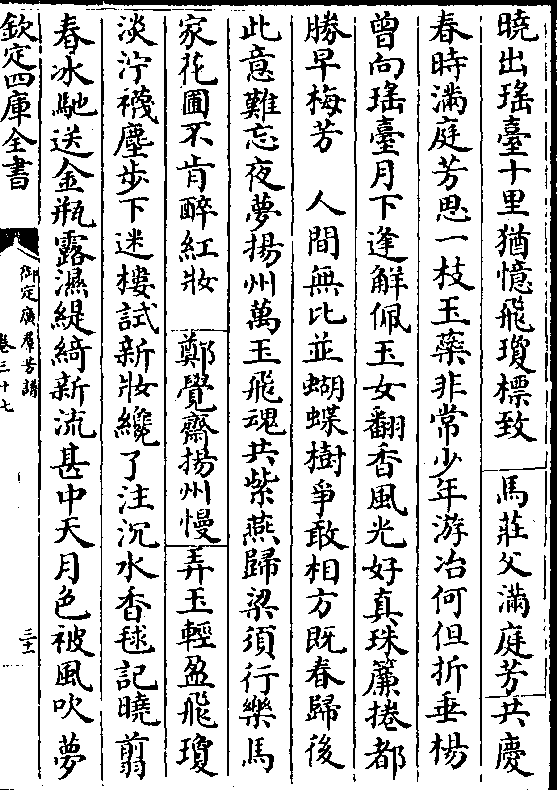 曉出瑤臺十里猶憶飛瓊標致　馬莊父滿庭芳共慶
春時滿庭芳思一枝玉蘂非常少年游冶何但折垂楊
曾向瑤臺月下逢解佩玉女翻香風光好真珠簾捲都
勝早梅芳　人間無比並蝴蝶樹爭敢相方既春歸後
此意難忘夜夢揚州萬玉飛魂共紫燕歸梁須行樂馬
家花圃不肯醉紅妝　鄭覺齋揚州慢弄玉輕盈飛瓊
淡泞襪塵步下迷樓試新妝纔了注沉水香毬記曉翦
春冰馳送金瓶露濕緹綺新流甚中天月色被風吹夢
欽定四庫全書
御定廣羣芳譜
卷三十七